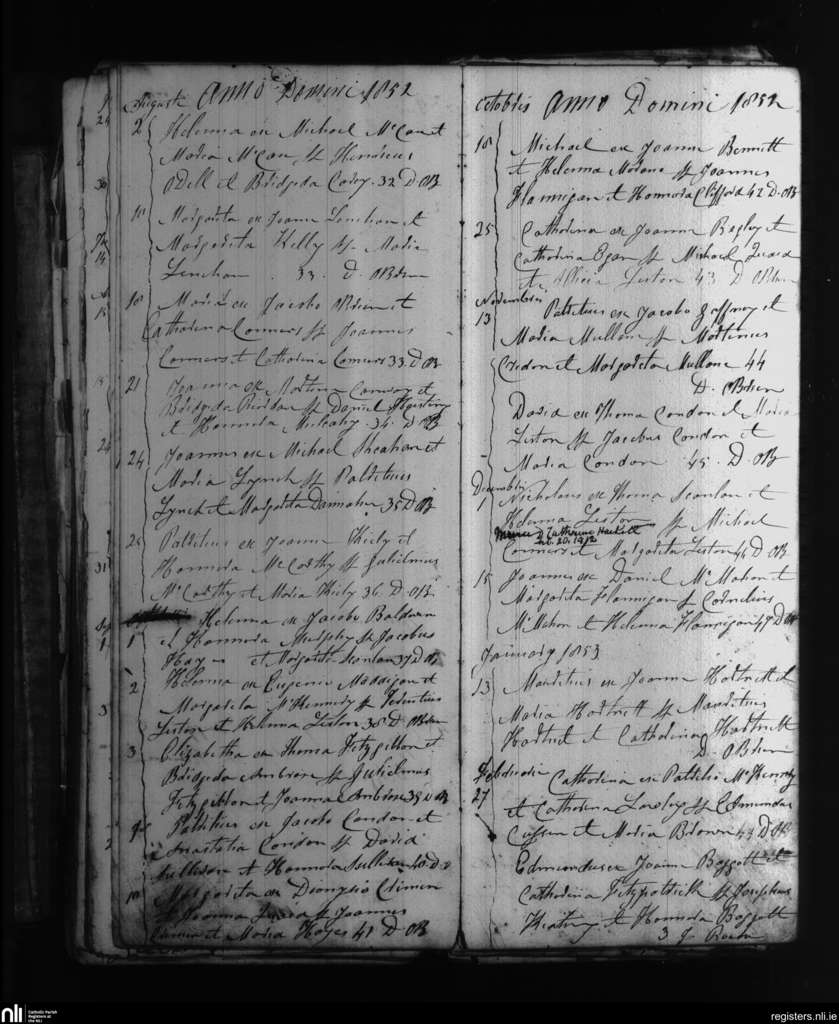 Augusti Anno Domini 1852
2 Helenna ex Michael McCan et
Maria McCan Sp Henricus
Odell et Bridgeda Carey . 32 D OB
10 Margarita ex Joanne Lenehan et
Margarita Kelly Sp Maria
Lenehan . 33. D. OBrien
18 Maria ex Jacobo OBrien et
Catharina Connors Sp Joannes
Connors et Catharina Connors 33 D OB
21 Joanna ex Martino Conway et
Bridgeda Riordan Sp Daniel
et Honnora Mulcahy . 34. D OB
24 Joannes ex Michael Sheahan et
Maria Lynch Sp Patritius
Lynch et Margarita 35 D OB
25 Patritius ex Joanne Kiely et
Honnora McCarthy Sp Gulielmus
McCarthy et Maria Kiely 36. D. OB.
Helenna ex Jacobo Baldwin
1 et Honnora Murphy Sp Jacobus
Hayes et Margarita Scanlan 37 D OB
2 Helenna ex Eugenio Madigan et
Margarita McKennedy Sp Terentius
Liston et Helenna Liston 38 D OBrien
3 Elizabetha ex Thoma Fitzgibbon et
Bridgeda Ambrose Sp Gulielmus
Fitzgibbon et Joanna Ambrose 39 D OB
9 Patritius ex Jacobo Condon et
Anastatia Condon Sp David
Sullivan et Honnora Sullivan 40 D
10 Margarita ex Dionysio
et Joanna Sp Joannes
et Maria Hayes 41 D OB
Octobris Anno Domini 1852
18 Michael ex Joanne Bennett
et Helenna Sp Joannes
Flannigan et Honnora Clifford 42 D. OB
25 Catharina ex Joanne Bagley et
Catharina Egan Sp Michael
et Alicia Liston 43 D OBrien
Novembris
13 Patritius ex Jacobo Gaffney et
Maria Mullane Sp Martinus
Credon et Margarita Mullane 44
D. OBrien
David ex Thoma Condon et Maria
Liston Sp Jacobus Condon et
Maria Condon 45. D. OB
Decembris
1 Nicholaus ex Thoma Scanlan et
Helenna Liston Sp Michael
Married Catherine Hackett
Feb. 20. 1912
Connors et Margarita Liston 46 D OB
15 Joannes ex Daniel McMahon et
Margarita Flannigan Sp Cornelius
McMahon et Helenna Flannigan 47 D OB
January 1853
13 Mauritius ex Joanne Hartnett et
Maria Hartnett Sp Mauritius
Hartnet et Catharina Hartnett
D. OBrien
Februarii Catharina ex Patritio McKennedy
27 et Catharina Sp Edmundus
Cussen et Maria Brown 43 D OB
Edmundus ex Joanne Baggott et
Catharina Fitzpatrick Sp Josephus
Keating et Honnora Baggott
3 J.
nli
Catholic Parish
Registers at
the NLI
registers.nli.ie